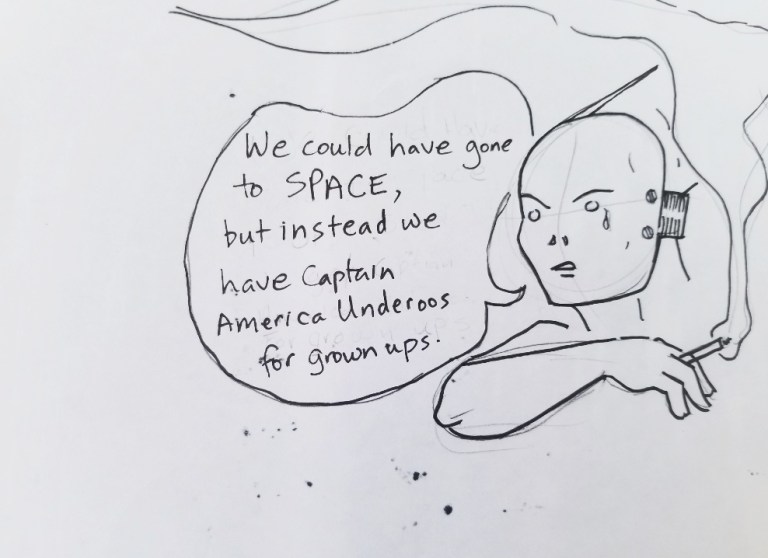 We could have gone
to SPACE,
but instead we
have Captain
America Underoos
for grown ups.